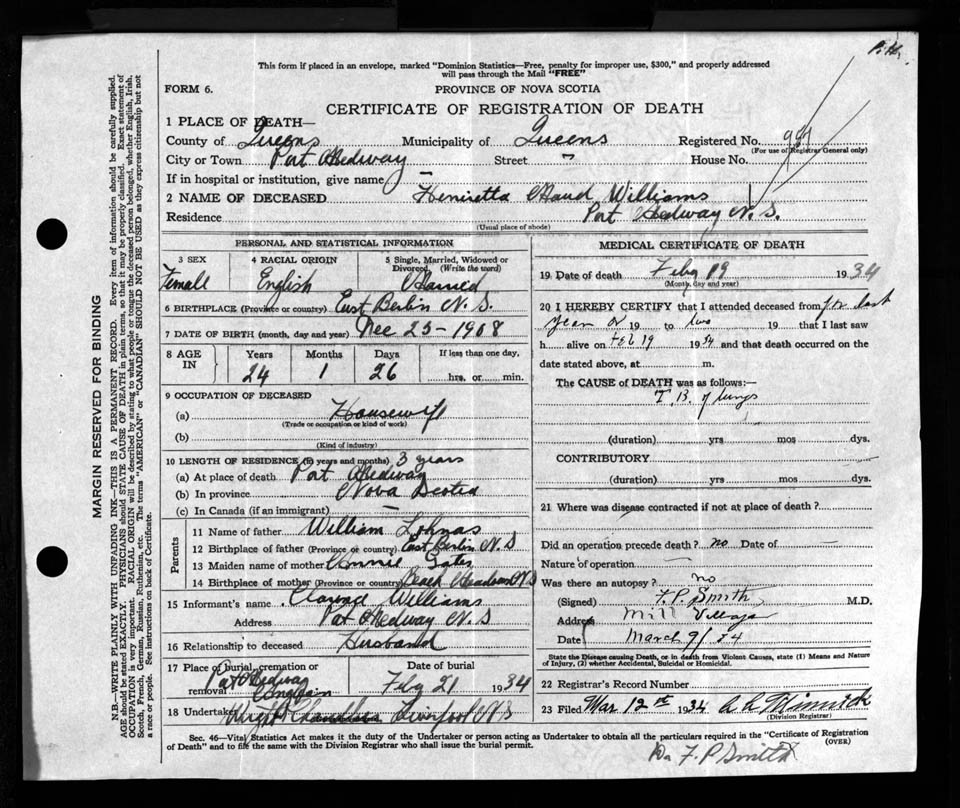 This form if placed in an envelope, marked "Dominion Statistics—Free, penalty for improper use, $300," and properly addressed
will pass through the Mail "FREE"
FORM 6.
PROVINCE OF NOVA SCOTIA
CERTIFICATE OF REGISTRATION OF DEATH
1 PLACE OF DEATH—
County of Queens Municipality of Queens Registered No.
(For use of Registrar General only)
City or Town Port Medway Street " House No.
If in hospital or institution, give name —
2 NAME OF DECEASED Henrietta Maud Williams
Residence Port Medway N.S.
(Usual place of abode)
PERSONAL AND STATISTICAL INFORMATION
3 SEX 4 RACIAL ORIGIN 5 Single, Married, Widowed or
Divorced (Write the word)
Female English Married
6 BIRTHPLACE (Province or country) East Berlin N.S.
7 DATE OF BIRTH (month, day and year) Dec 25-1908
8 AGE IN Years Months Days If less than one day,
24 1 26 hrs. or min.
9 OCCUPATION OF DECEASED
(a) Housewife
(Trade or occupation or kind of work)
(b)
(Kind of industry)
10 LENGTH OF RESIDENCE (in years and months) 3 years
(a) At place of death Port Medway
(b) In province Nova Scotia
(c) In Canada (if an immigrant) —
Parents
11 Name of father William Lohnas
12 Birthplace of father (Province or country) East Berlin N.S
13 Maiden name of mother Annie Gates
14 Birthplace of mother (Province or country) Beach Meadows N S
15 Informant's name Clarence Williams
Address Port Medway N.S
16 Relationship to deceased Husband
17 Place of burial, cremation or Date of burial
removal Port Medway Feby 21 1934
18 Undertaker Wright Chandler Liverpool N S
MEDICAL CERTIFICATE OF DEATH
19. Date of death Feby 19 1934
(Month, day and year)
20 I HEREBY CERTIFY that I attended deceased from for last
year or 19 to two 19 that I last saw
h alive on Feb 19 1934 and that death occurred on the
date stated above, at m.
The CAUSE of DEATH was as follows:—
T. B. of lungs
(duration) yrs mos dys.
CONTRIBUTORY
(duration) yrs mos dys.
21 Where was disease contracted if not at place of death?
Did an operation precede death? no Date of —
Nature of operation —
Was there an autopsy? no
(Signed) F. P. Smith M.D.
Address Mill Village
Date March 9/34
State the Disease causing Death, or in death from Violent Causes, state (1) Means and Nature
of Injury, (2) whether Accidental, Suicidal or Homicidal.
22 Registrar's Record Number
23 Filed Mar 12th 1934
(Division Registrar)
Sec. 46—Vital Statistics Act makes it the duty of the Undertaker or person acting as Undertaker to obtain all the particulars required in the "Certificate of Registration
of Death" and to file the same with the Division Registrar who shall issue the burial permit.
(OVER)
Dr F. P Smith
MARGIN RESERVED FOR BINDING
N.B.—WRITE PLAINLY WITH UNFADING INK—THIS IS A PERMANENT RECORD. Every item of information should be carefully supplied.
AGE should be stated EXACTLY. PHYSICIANS should STATE CAUSE OF DEATH in plain terms, so that it may be properly classified. Exact statement of
OCCUPATION is very important. RACIAL ORIGIN will be described by stating to what people or tongue the deceased person belonged, whether English, Irish,
Scotch, French, German, Russian, Ruthenian, etc. The terms "AMERICAN" or "CANADIAN" SHOULD NOT BE USED as they express citizenship but not
a race or people. See instructions on back of Certificate.